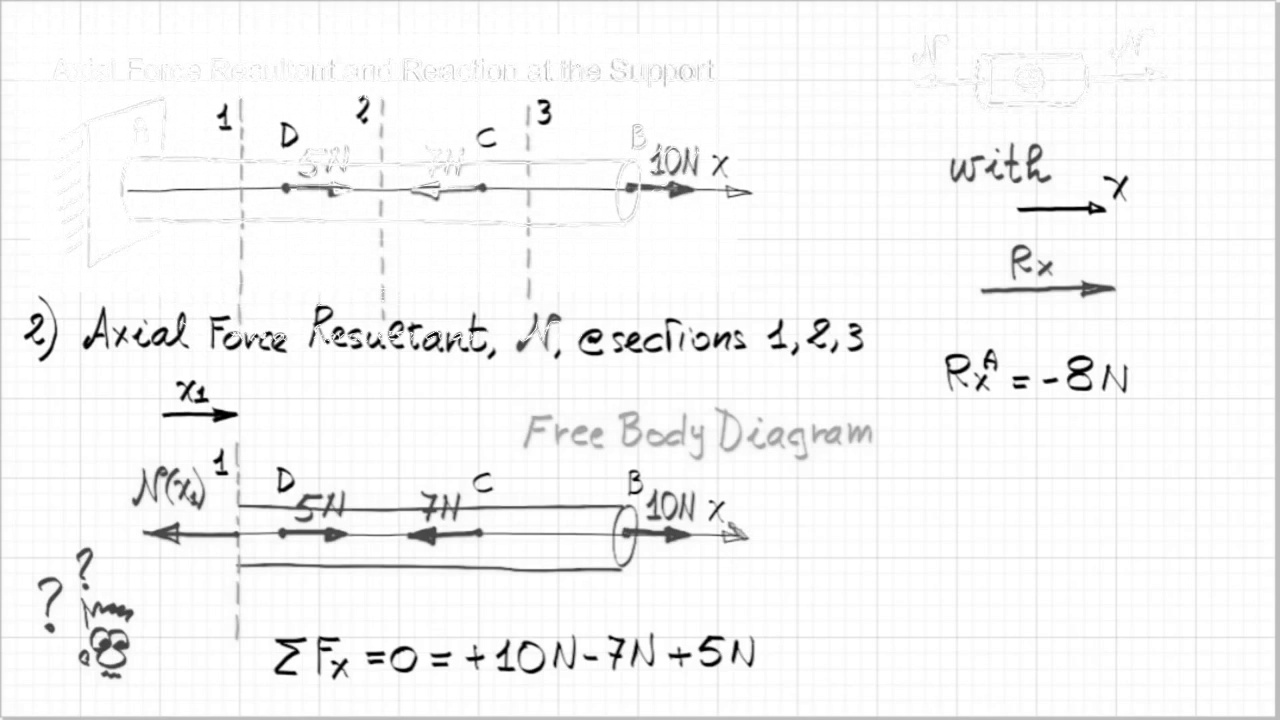 Axial Force Resultant and Reaction at the Support
N N
1 2 3
A D 5N 7N C B 10N x
with x
Rx
2) Axial Force Resultant, N, @sections 1,2,3
RxA = -8N
x1
Free Body Diagram
N(x1) 1 D 5N 7N C B 10N x
? ?
ΣFx = 0 = +10N-7N+5N